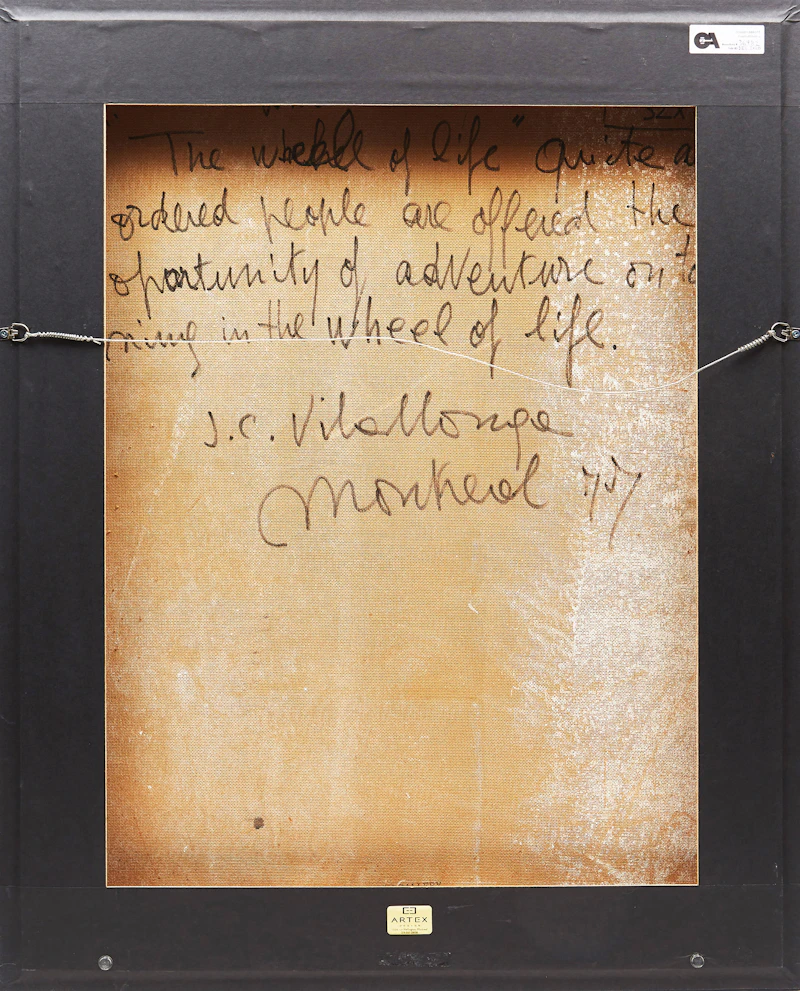 GA
32x
"The wheel of life" Quiete a
ordered people are offered the
oportunity of adventure on to
ring in the wheel of life.
J.C. Vilallonga
Montreal 757
ARTEX